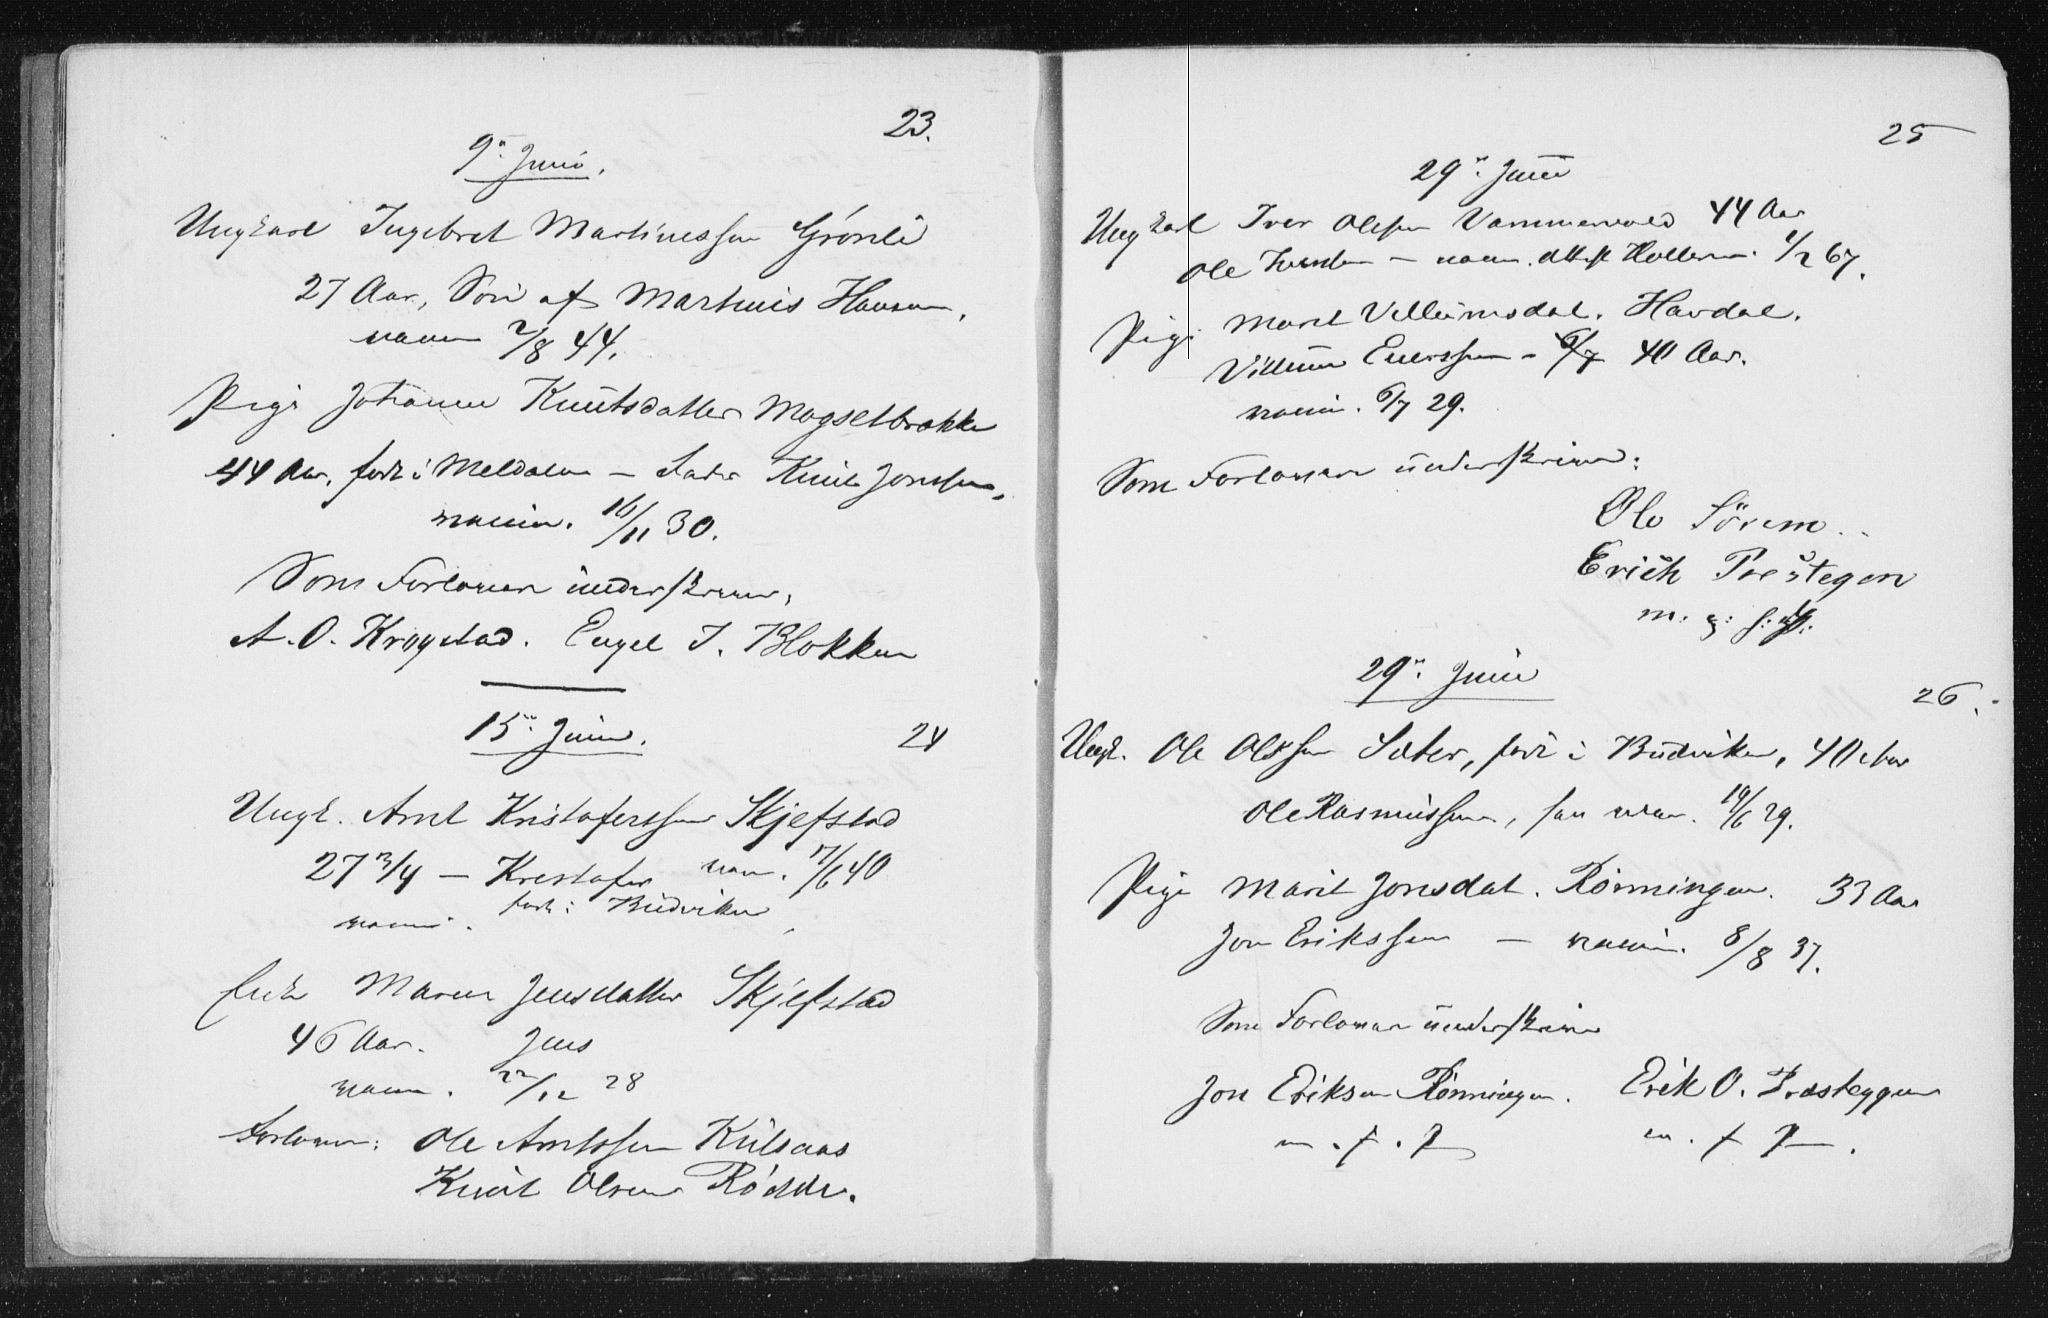 23.
9de Juni.
Ungkarl Ingebret Martinussen Grønli
27 Aar, Søn af Martinus Hansen,
vaccin 2/8 44.
Pige Johanne Knutsdatter Mogsetbrække
44 Aar, født i Meldalen — Fader Knut Jonssen,
vaccin. 16/11 30.
Som Forlovere underskriver,
A. O. Krogstad. Engel J. Blokkum
15de Juni. 24
Ungk. Arnt Kristoferssen Skjefstad
27 3/4 — Kristofer vacc. 17/6 40
vaccin. født i Budviken
Enke Maren Jensdatter Skjefstad
46 Aar. Jens
vaccin. 22/12 28
Forlovere: Ole Arntssen Kulsaas
Knut Olsen Rødde.
25
29de Juni
Ungkarl Iver Olssen Vammervold 44 Aar
Ole Iversen — vaccin. attest 1/2 67.
Pige Marit Villumsdat. Havdal.
Villum Einerssen — 6/7 40 Aar.
vaccin. 6/7 29.
Som Forlovere underskriver:
Ole Sørem
Erich Prestegen
m. g: f: P:
29de Juni
26.
Ungk. Ole Olssen Sæter, født i Budviken, 40 Aar
Ole Rasmussen, vacc. 19/6 29.
Pige Marit Jonsdat. Rønningen. 33 Aar
Jon Erikssen — vaccin. 8/8 37.
Som Forlovere underskriver
Jon Eriksen Rønningen. Erik O. Præsteggen
m. f. P m. f P.